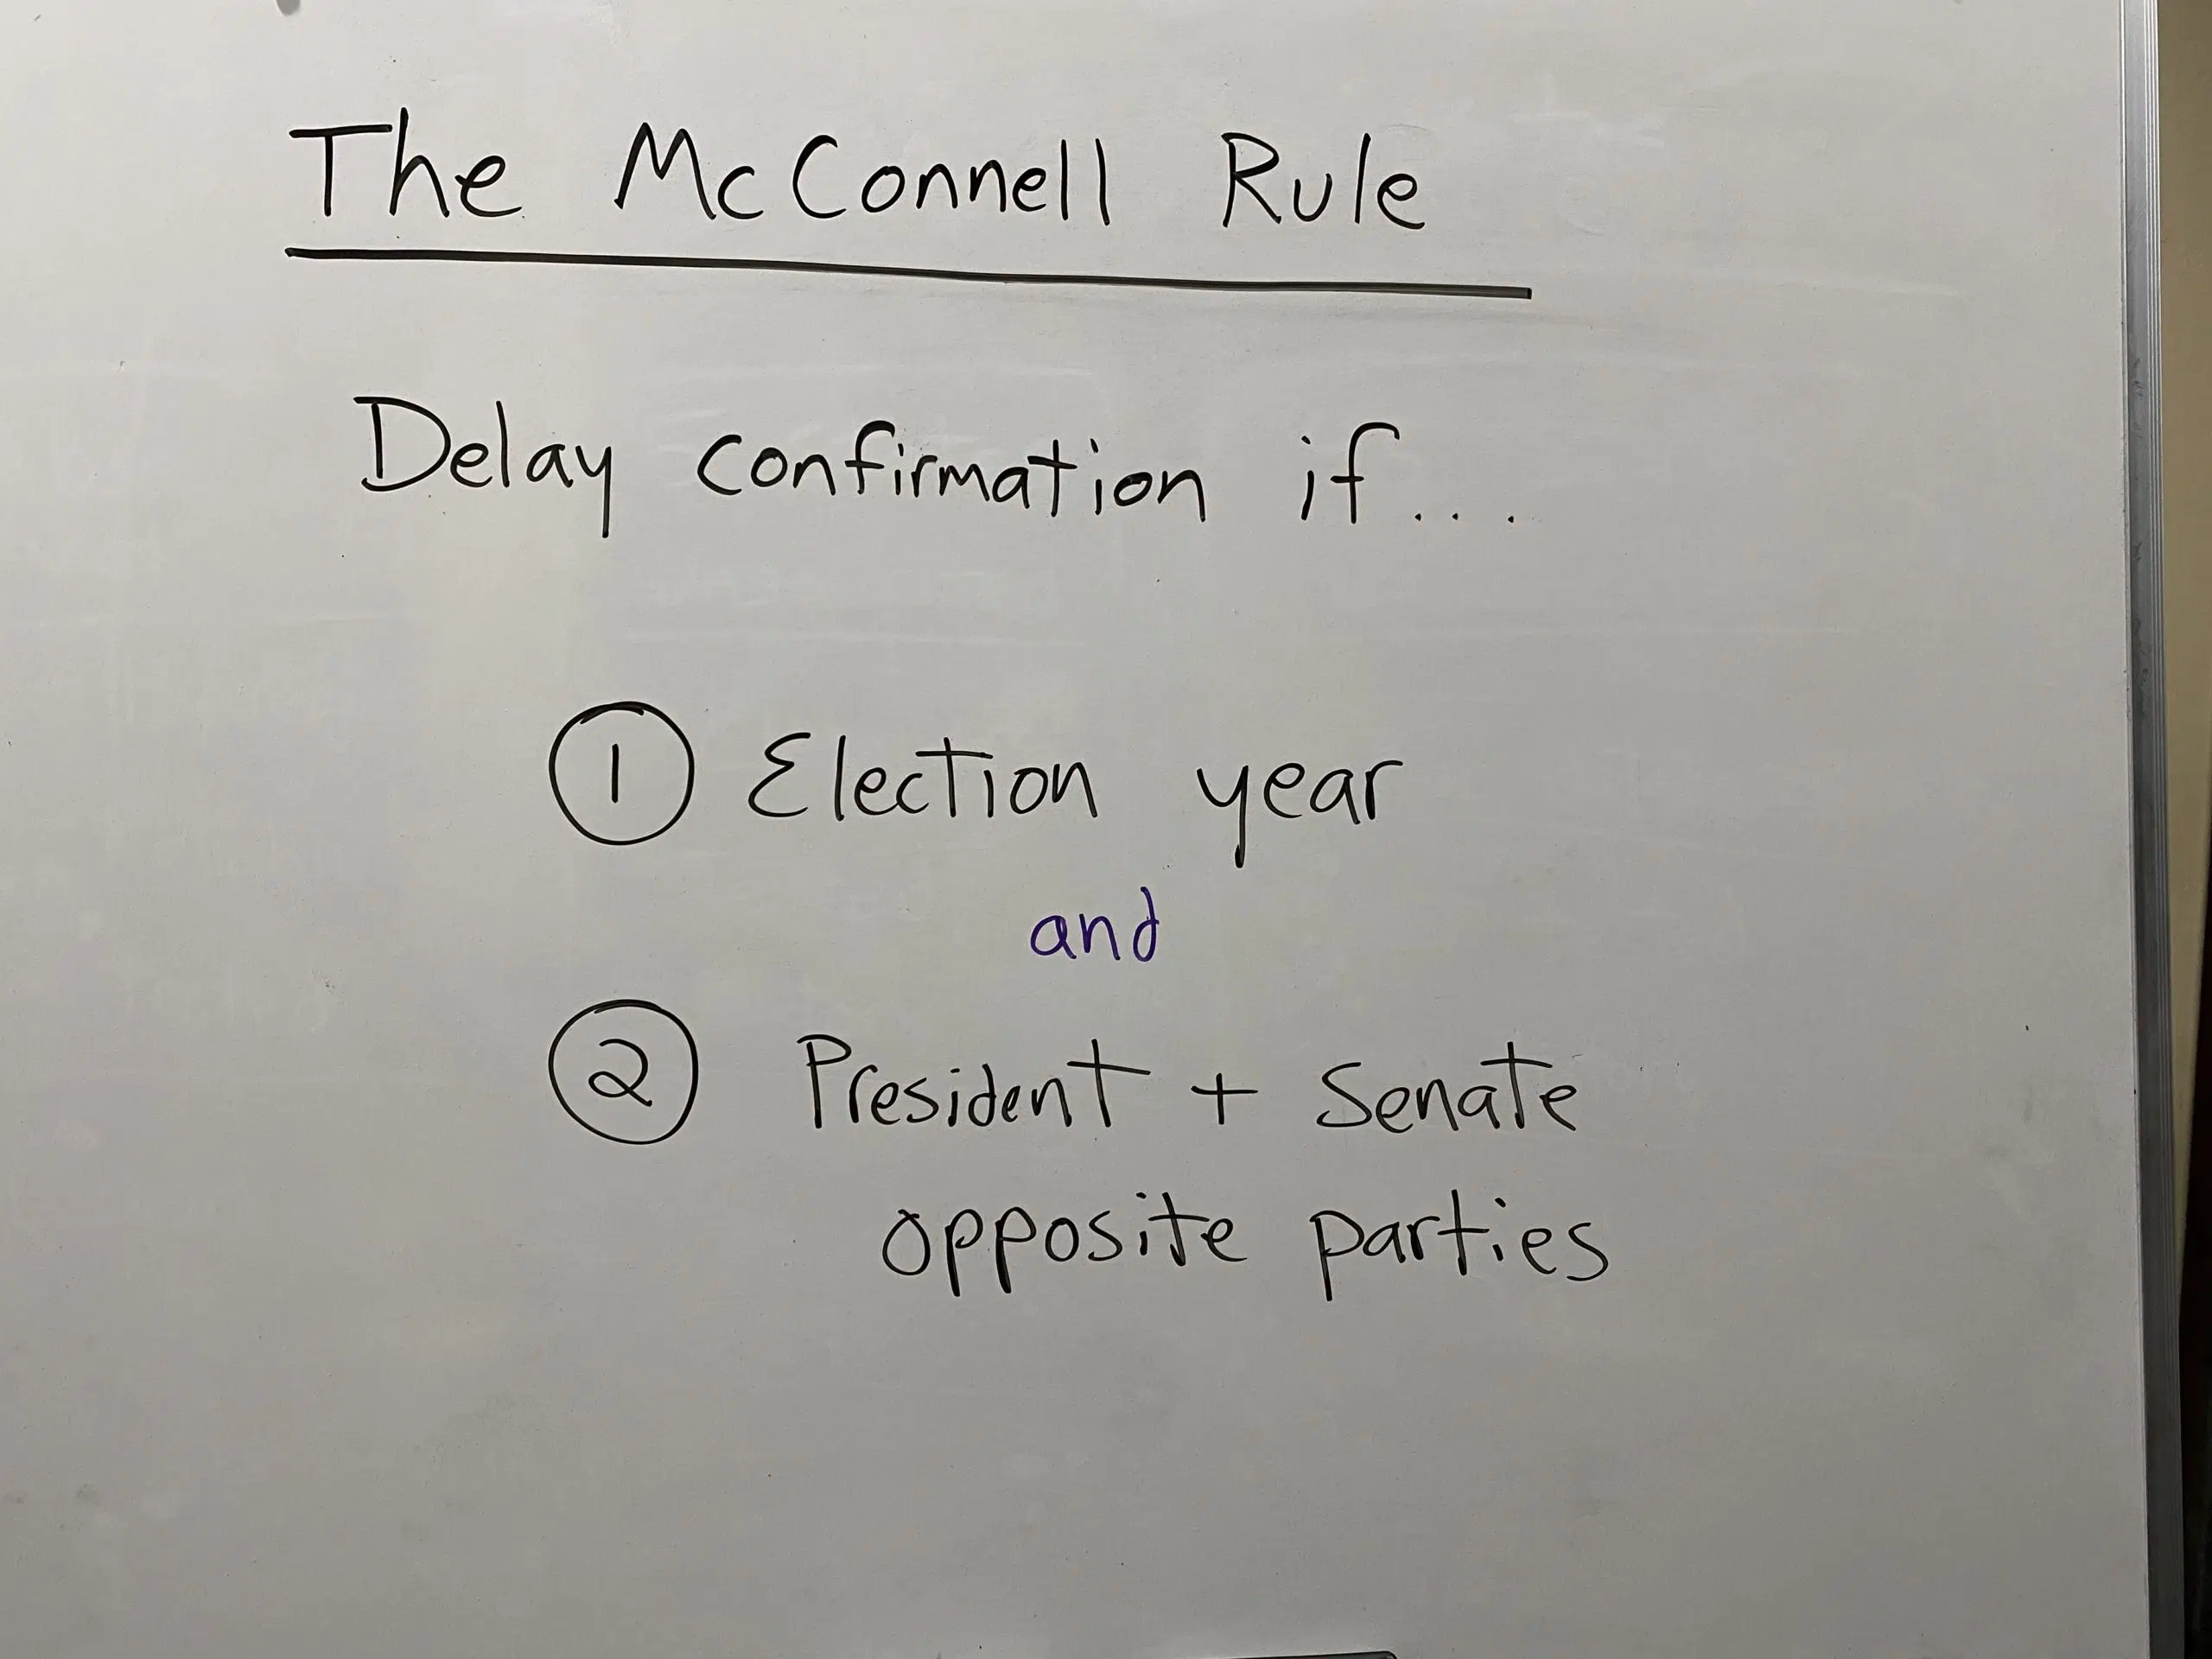 The McConnell Rule
Delay confirmation if....
1 Election year
and
2 President + Senate
opposite parties